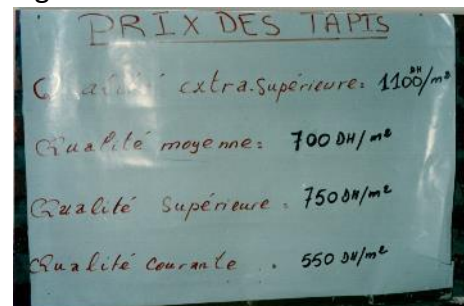 PRIX DES TAPIS
Qualité extra.Supérieure: 1100 DH/m²
Qualité moyenne: 700 DH/m²
Qualité Supérieure: 750 DH/m²
Qualité Courante: 550 DH/m²